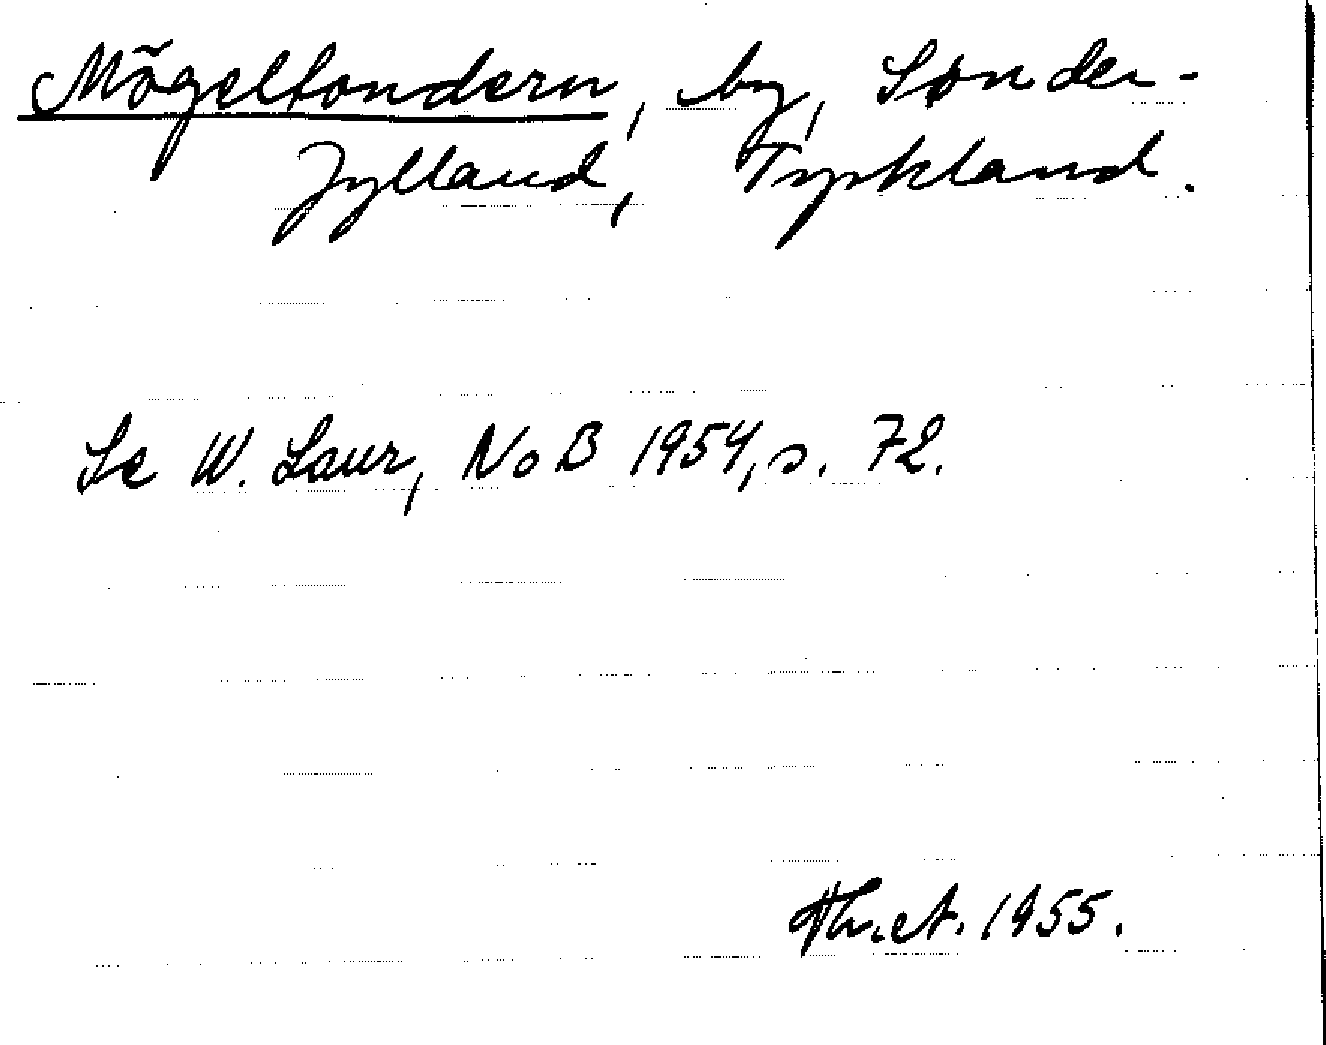 Mögeltondern, by, Sønder-
Jylland, Tyskland.
Se W. Laur, NoB 1954, s. 72.
Th. A. 1955.